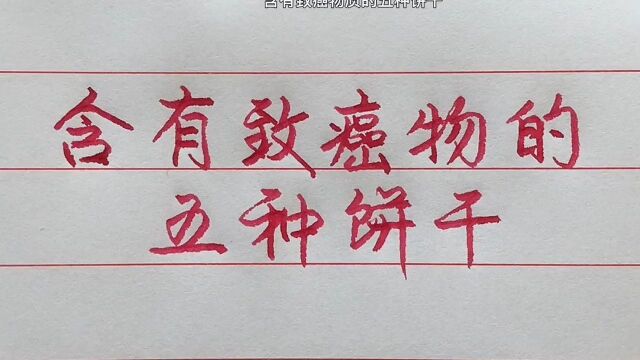 含有致癌物质的五种饼干
含有致癌物的
五种饼干